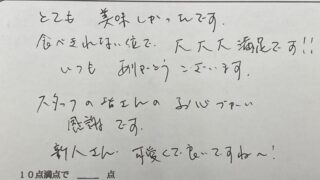 とても 美味しかったです。
食べきれない位で、大大大満足です!!
いつも ありがとう ございます。
スタッフの皆さんの お心づかい
感謝です。
新人さん、可愛くて良いですね〜!
10点満点で ____ 点